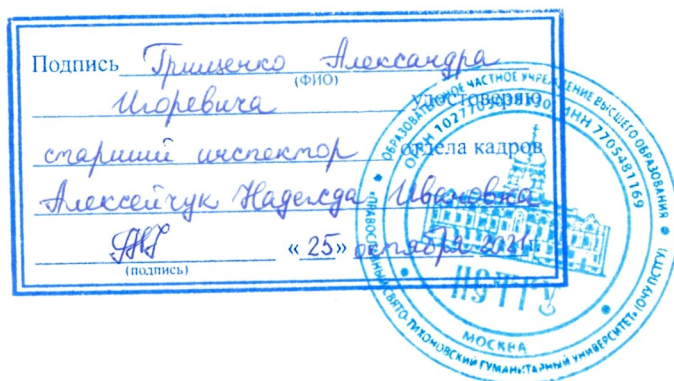 Подпись Грищенко Александра
(ФИО)
Игоревича удостоверяю
старший инспектор отдела кадров
Алексейчук Надежда Ивановна
(подпись)
«25» октября
ОБРАЗОВАТЕЛЬНОЕ ЧАСТНОЕ УЧРЕЖДЕНИЕ ВЫСШЕГО ОБРАЗОВАНИЯ
«ПРАВОСЛАВНЫЙ СВЯТО-ТИХОНОВСКИЙ ГУМАНИТАРНЫЙ УНИВЕРСИТЕТ» (ОЧУ ПСТГУ)
ОГРН ИНН 7705481169
ПСТГУ
МОСКВА